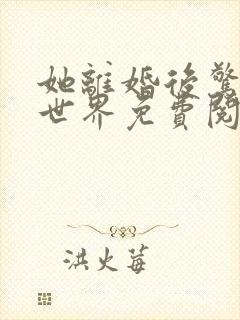 她離婚後驚
世界免費閱
洪火莓